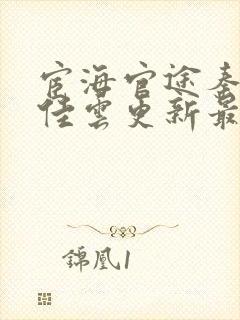 宦海官途秦
佳雲更新最
錦凰1